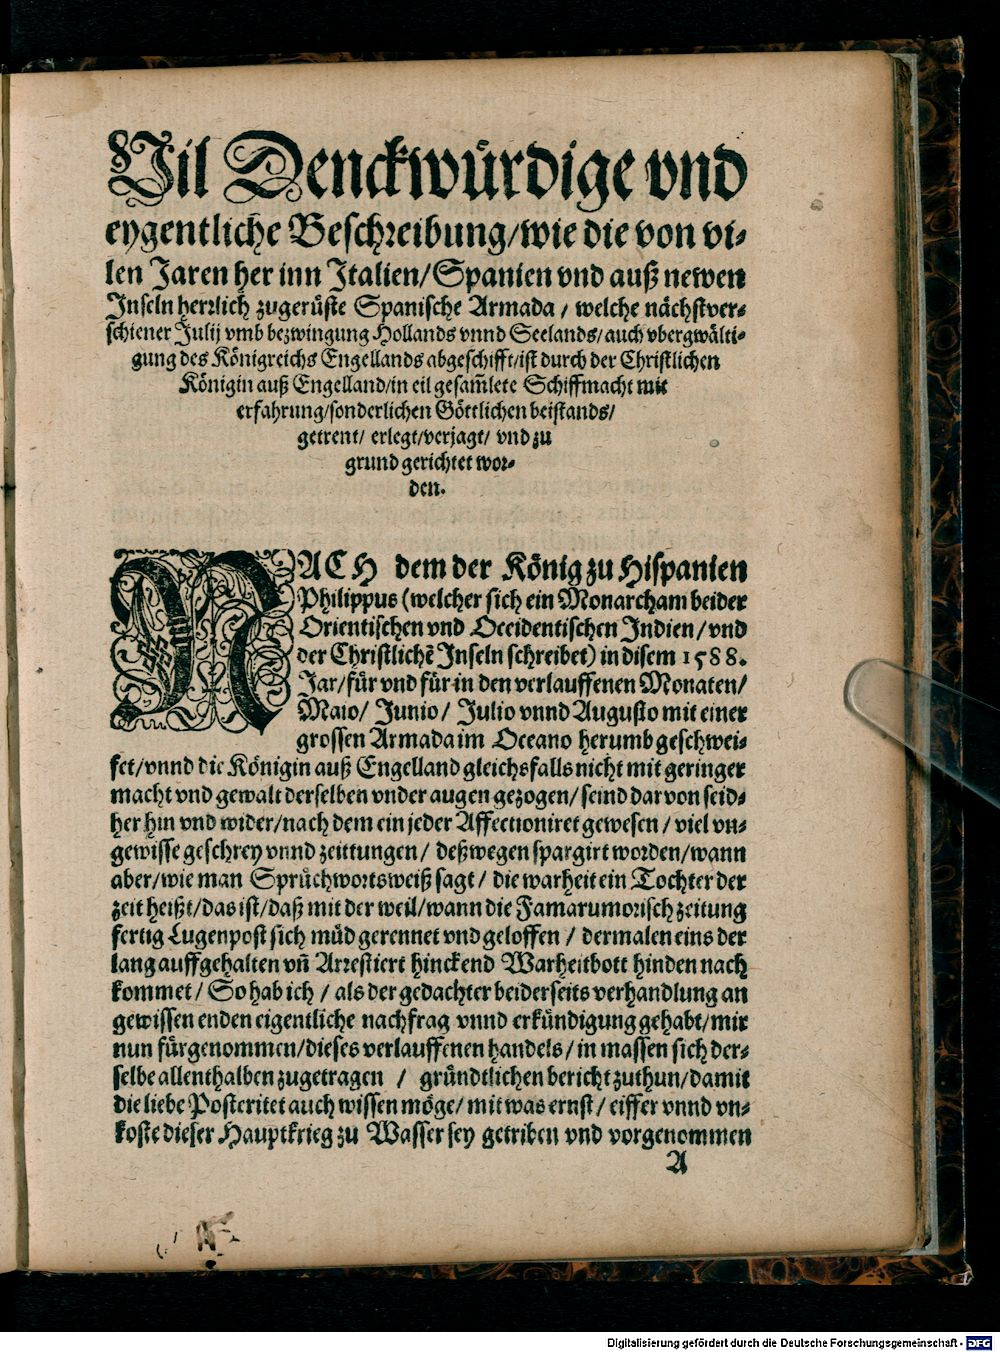 Vil Denckwürdige vnd
eygentliche Beschreibung/wie die von vi-
len Jaren her inn Italien/Spanien vnd auß newen
Inseln herrlich zugerüste Spanische Armada / welche nächstver-
schiener Julij vmb bezwingung Hollands vnnd Seelands/auch vbergwälti-
gung des Königreichs Engellands abgeschifft/ist durch der Christlichen
Königin auß Engelland/in eil gesam̃lete Schiffmacht mit
erfahrung/sonderlichen Göttlichen beistands/
getrent/ erlegt/verjagt/ vnd zu
grund gerichtet wor-
den.
NACH dem der König zu Hispanien
Philippus (welcher sich ein Monarcham beider
Orientischen vnd Occidentischen Indien/vnd
der Christlichẽ Inseln schreibet) in disem 1588.
Jar/für vnd für in den verlauffenen Monaten/
Maio/ Junio/ Julio vnnd Augusto mit einer
grossen Armada im Oceano herumb geschwei-
fet/vnnd die Königin auß Engelland gleichsfalls nicht mit geringer
macht vnd gewalt derselben vnder augen gezogen/ seind darvon seid-
her hin vnd wider/nach dem ein jeder Affectioniret gewesen / viel vn-
gewisse geschrey vnnd zeittungen / deßwegen spargirt worden/wann
aber/wie man Sprüchwortsweiß sagt / die warheit ein Tochter der
zeit heißt/das ist/daß mit der weil/wann die Famarumorisch zeitung
fertig Lugenpost sich müd gerennet vnd geloffen / dermalen eins der
lang auffgehalten vñ Arrestiert hinckend Warheitbott hinden nach
kommet/ So hab ich / als der gedachter beiderseits verhandlung an
gewissen enden eigentliche nachfrag vnnd erkündigung gehabt/mir
nun fürgenommen/dieses verlauffenen handels/in massen sich der-
selbe allenthalben zugetragen / gründtlichen bericht zuthun/damit
die liebe Posteritet auch wissen möge/ mit was ernst / eiffer vnnd vn-
koste dieser Hauptkrieg zu Wasser sey getriben vnd vorgenommen
A
Digitalisierung gefördert durch die Deutsche Forschungsgemeinschaft - DFG